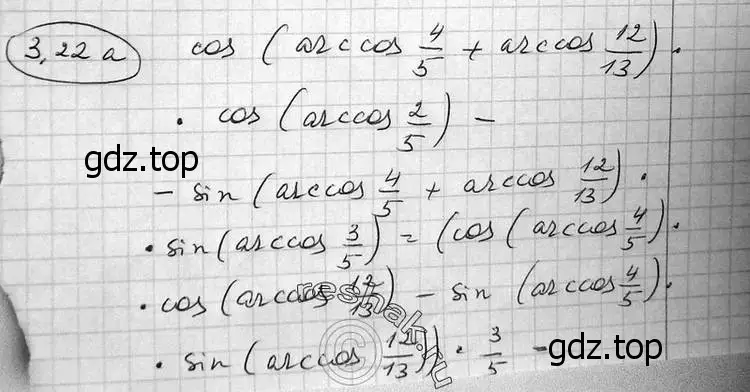 3,22 а cos (arccos 4/5 + arccos 12/13) ·
· cos (arccos 2/5) -
gdz.top
- sin (arccos 4/5 + arccos 12/13) ·
· sin (arccos 3/5) = (cos (arccos 4/5) ·
· cos (arccos 12/13) - sin (arccos 4/5) ·
· sin (arccos 12/13)) · 3/5 -
gdz.top